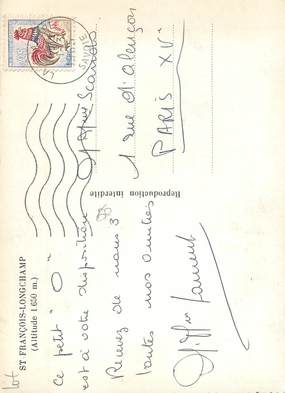 ST FRANÇOIS-LONGCHAMP
(Altitude 1 650 m.)
Ce petit " O "
est à votre disposition
Recevez de nous 3
toutes nos amitiés
Laurent
Reproduction interdite
1 rue d'Alençon
PARIS XV
SAVOIE
lot